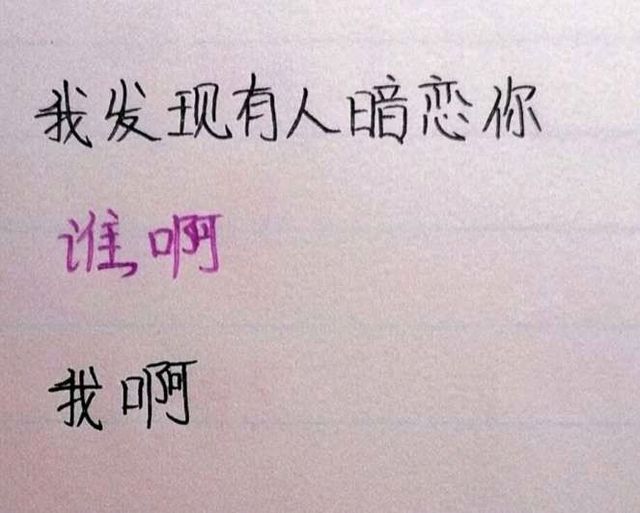 我发现有人暗恋你
谁啊
我啊